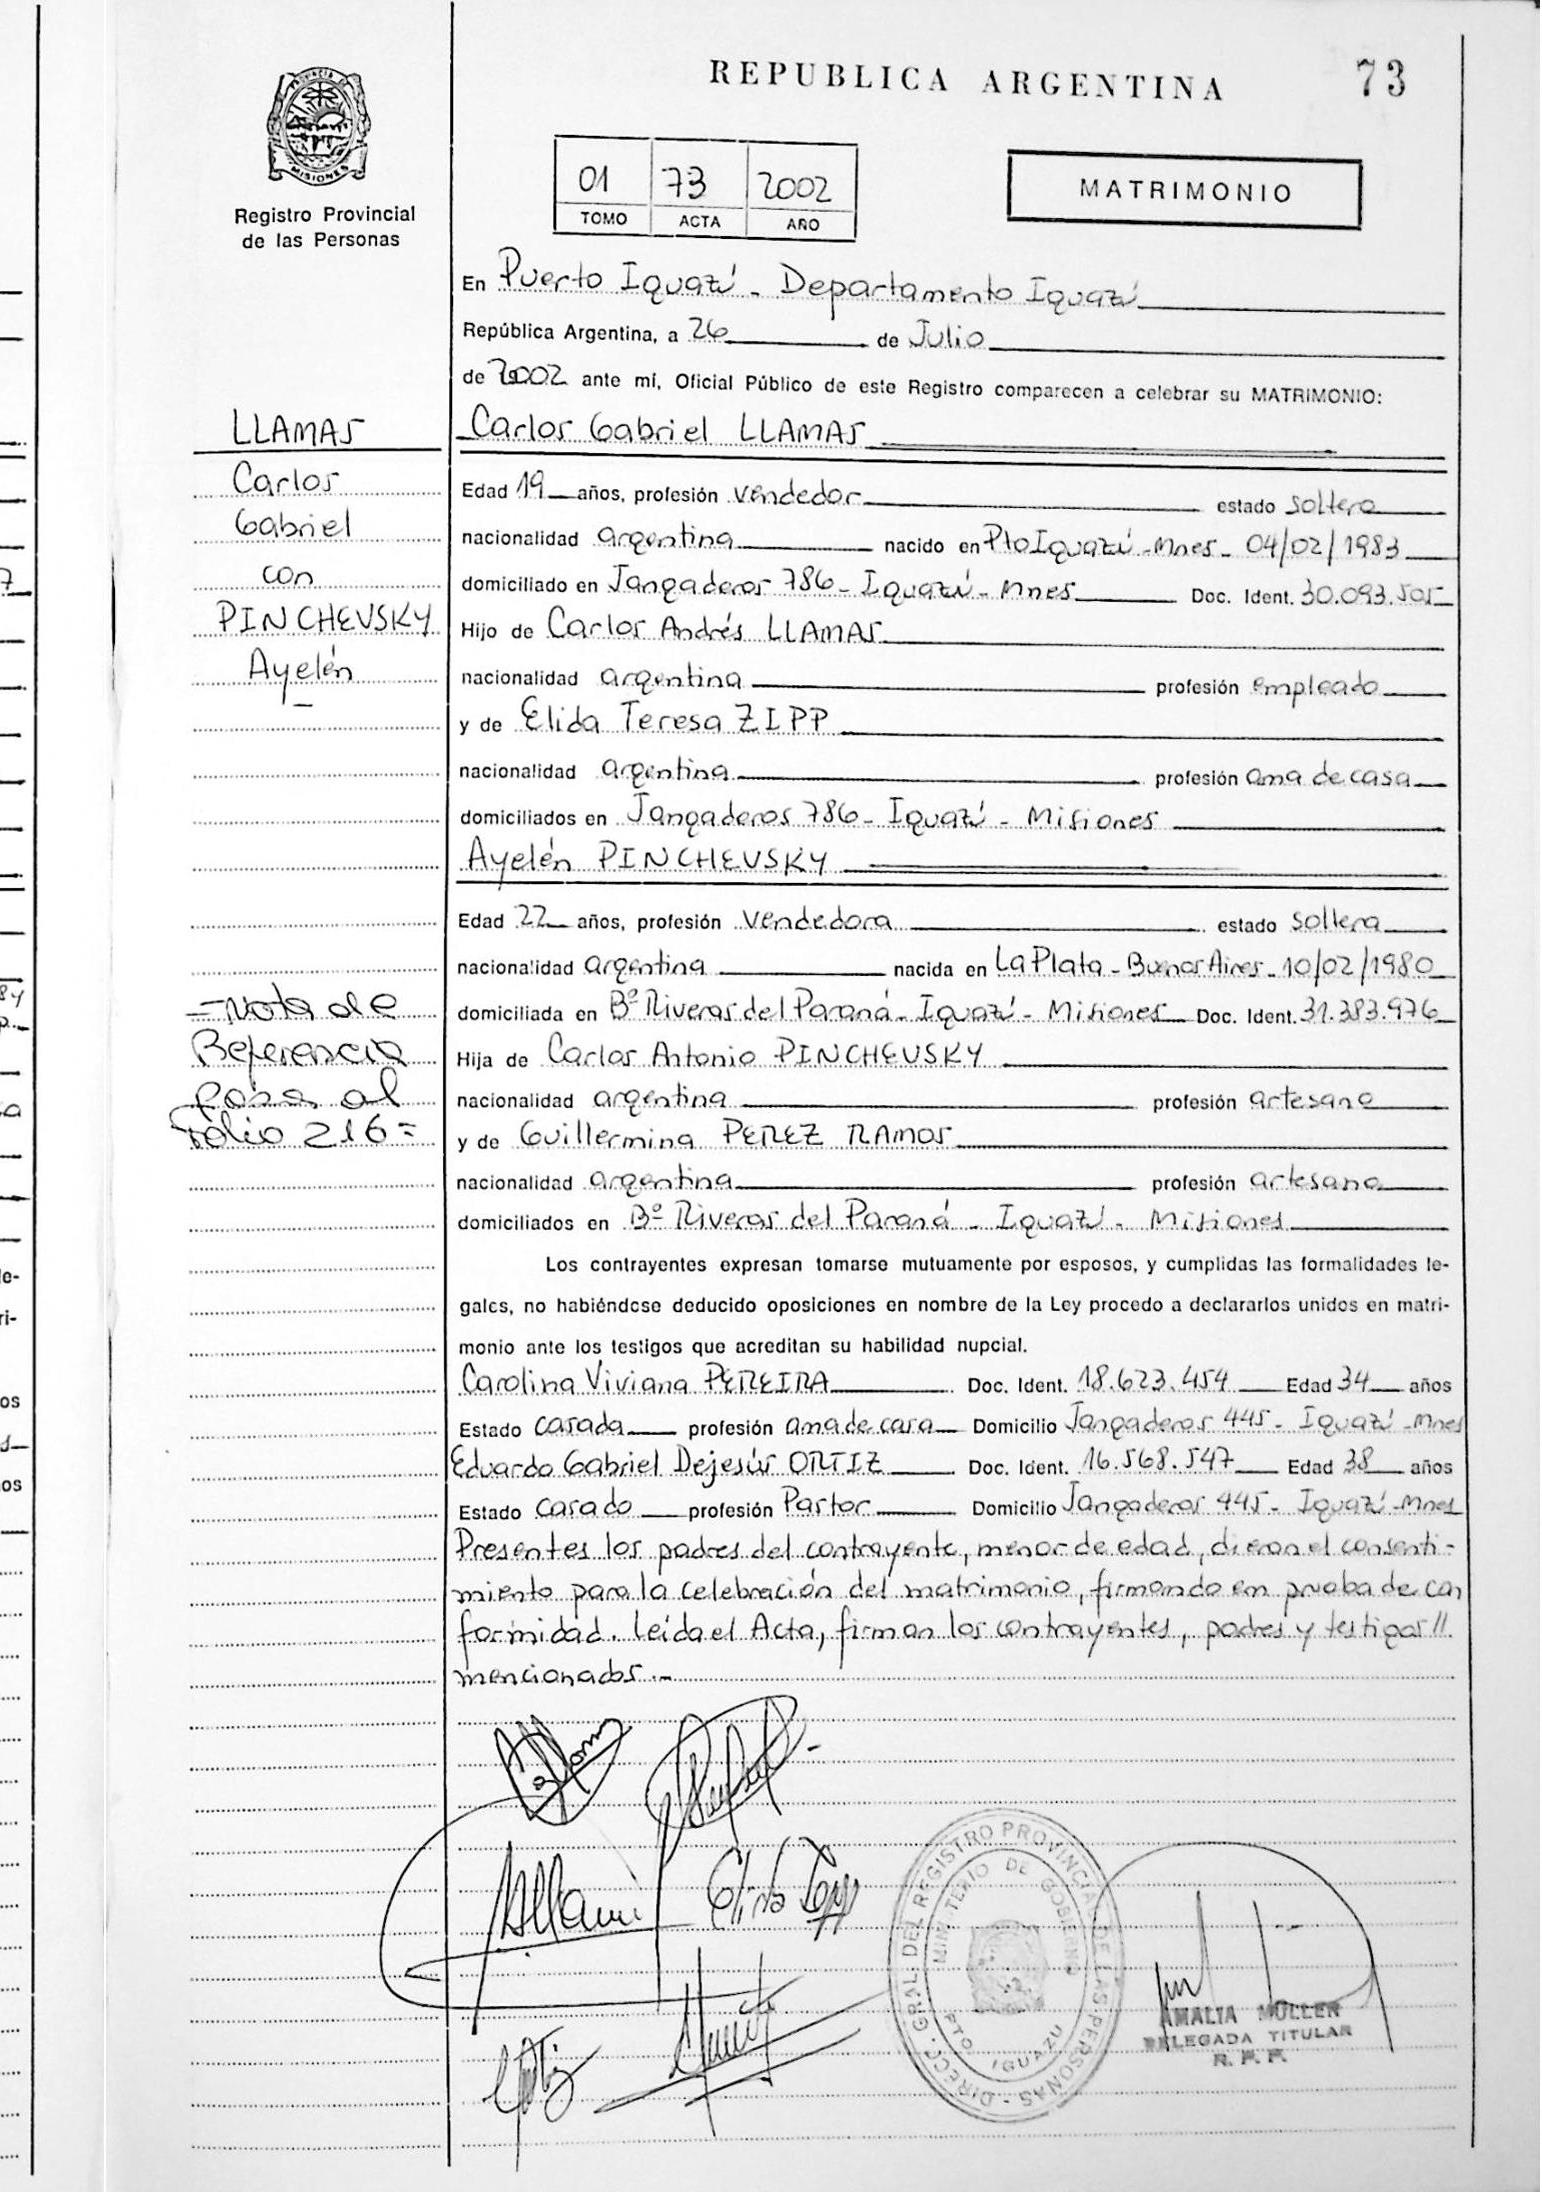 REPUBLICA ARGENTINA
73
PROVINCIA
MISIONES
Registro Provincial
de las Personas
01 73 2002
TOMO ACTA AÑO
MATRIMONIO
En Puerto Iguazú - Departamento Iguazú
República Argentina, a 26 de Julio
de 2002 ante mí, Oficial Público de este Registro comparecen a celebrar su MATRIMONIO:
Carlos Gabriel LLAMAS
Edad 19 años, profesión vendedor estado soltero
nacionalidad argentina nacido en Pto Iguazú - Mnes - 04/02/1983
domiciliado en Jangaderos 786 - Iguazú - Mnes Doc. Ident. 30.093.505
Hijo de Carlos Andrés LLAMAS
nacionalidad argentina profesión empleado
y de Elida Teresa ZIPP
nacionalidad argentina profesión ama de casa
domiciliados en Jangaderos 786 - Iguazú - Misiones
Ayelén PINCHEVSKY
Edad 22 años, profesión vendedora estado soltera
nacionalidad argentina nacida en La Plata - Buenos Aires - 10/02/1980
domiciliada en Bº Riveras del Paraná - Iguazú - Misiones Doc. Ident. 31.383.976
Hija de Carlos Antonio PINCHEVSKY
nacionalidad argentina profesión artesano
y de Guillermina PEREZ RAMOS
nacionalidad argentina profesión artesana
domiciliados en Bº Riveras del Paraná - Iguazú - Misiones
Los contrayentes expresan tomarse mutuamente por esposos, y cumplidas las formalidades le-
gales, no habiéndose deducido oposiciones en nombre de la Ley procedo a declararlos unidos en matri-
monio ante los testigos que acreditan su habilidad nupcial.
Carolina Viviana PEREIRA Doc. Ident. 18.623.454 Edad 34 años
Estado casada profesión ama de casa Domicilio Jangaderos 445 - Iguazú - Mnes
Eduardo Gabriel Dejesús ORTIZ Doc. Ident. 16.568.547 Edad 38 años
Estado casado profesión Pastor Domicilio Jangaderos 445 - Iguazú - Mnes
Presentes los padres del contrayente, menor de edad, dieron el consenti-
miento para la celebración del matrimonio, firmando en prueba de con
formidad. Leída el Acta, firman los contrayentes, padres y testigos //.
mencionados.-
LLAMAS
Carlos
Gabriel
con
PINCHEVSKY
Ayelén
-
= Nota de
Referencia
pasa al
Folio 216 =
Elida Zipp
DIRECC. GRAL. DEL REGISTRO PROVINCIAL DE LAS PERSONAS
MINISTERIO DE GOBIERNO
PTO IGUAZU
AMALIA MULLER
DELEGADA TITULAR
R. P. P.